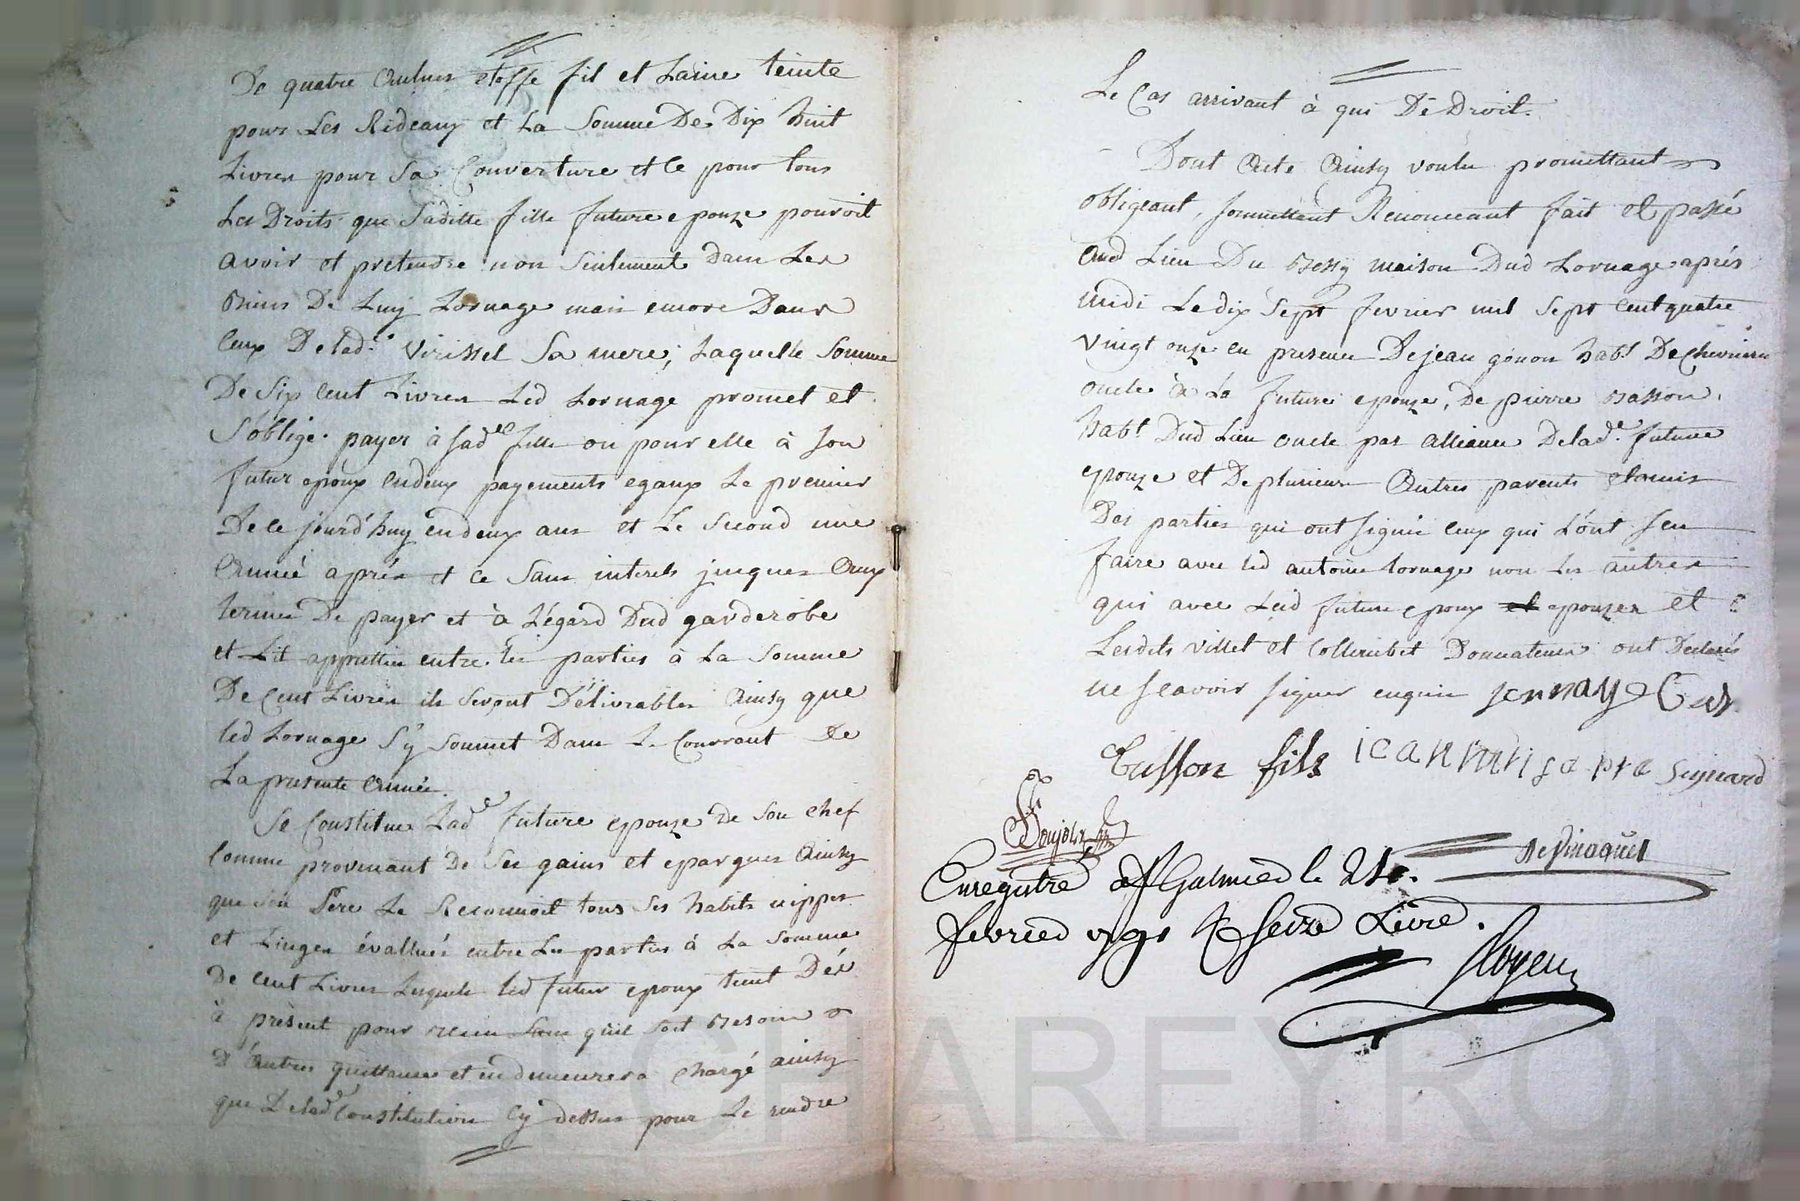 De quatre Aulnes etoffe fil et Laine teinte
pour Les Rideaux et La Somme De Dix huit
Livres pour Sa Couverture et Ce pour tous
Les Droits que Saditte fille future epouze pourroit
avoir et pretendre non Seulement Dans Les
Biens De Luy Lornage mais encore Dans
Ceux De lad.e Virissel Sa mere; Laquelle Somme
De Six Cent Livres Led Lornage promet et
S'oblige payer à Sad.e fille ou pour elle à Son
futur epoux en deux payements egaux Le premier
De Ce jourd'huy en deux ans et Le Second une
Année après et Ce Sans interets jusques Aux
termes De payer et à L'égard Dud garderobe
et Lit apprettiés entre Les parties à La Somme
De Cent Livres ils Seront Délivrables Ainsy que
led Lornage S'y Soumet Dans Le Courrant De
La presente Année.
Se Constitue Lad.e future epouze De Son Chef
Comme provenant De Ses gains et epargnes Ainsy
que Son Pere Le Reconnoit tous Ses habits nippes
et Linges évallués entre Les parties à La Somme
De Cent Livres Lesquels led futur epoux tient Dés
à présent pour Sans qu'il Soit Besoin
D'Autres quittances et en demeurera Chargé ainsy
que De lad.e Constitution Cy dessus pour Le rendre
Le Cas arrivant à qui De Droit.
Dont Acte Ainsy voulu promettant
obligeant, Soumettant Renonceant fait et passé
Aud Lieu Du maison Dud Lornage après
midi Le dix Sept fevrier mil Sept Cent quatre
vingt onze en presence De jean génon habt De Chevrieres
oncle à La future epouze, De pierre Basson
habt Dud Lieu oncle par alliance De lad.e future
epouze et De plusieurs Autres parents et amis
Des parties qui ont Signé Ceux qui L'ont Seu
faire avec led antoine Lornage non Les autres
qui avec Led future epoux et epouzes et
Lesdits Villet et Collembet Donnateurs ont Declarés
ne Scavoir Signer enquis
fils
Enregistré a St Galmier le 21e.
fevrier 1791 Seize Livre.
CHAREYRON